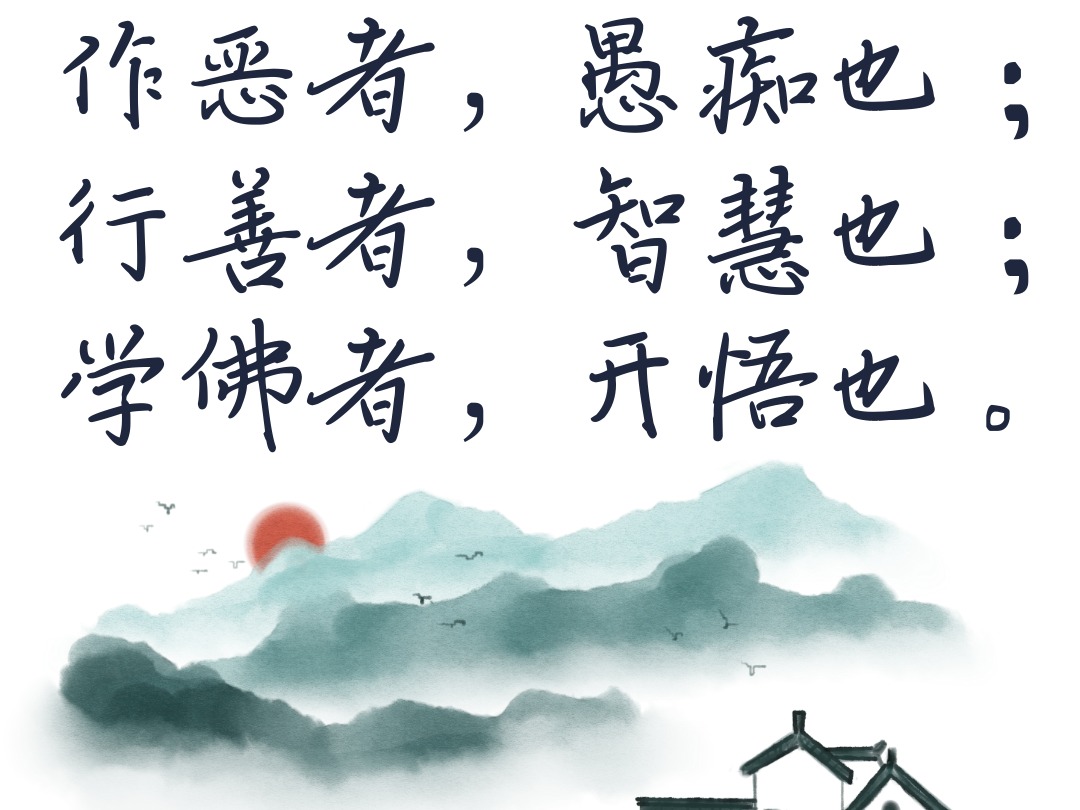 作恶者，愚痴也；
行善者，智慧也；
学佛者，开悟也。